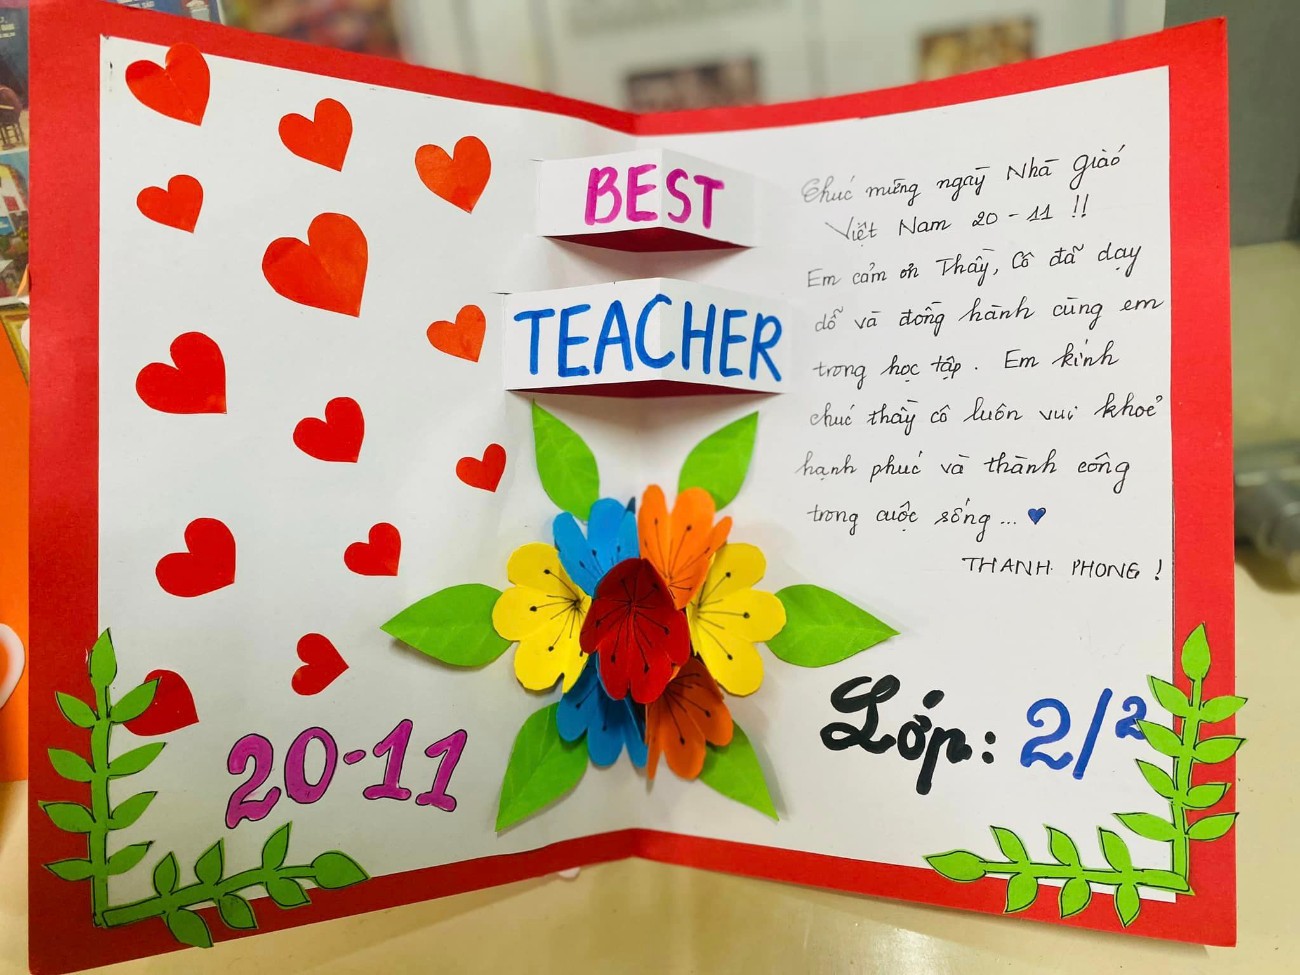 BEST
TEACHER
20-11
Chúc mừng ngày Nhà giáo
Việt Nam 20-11 !!
Em cảm ơn Thầy, Cô đã dạy
dỗ và đồng hành cùng em
trong học tập. Em kính
chúc thầy cô luôn vui khoẻ
hạnh phúc và thành công
trong cuộc sống... ♥
THANH PHONG !
Lớp: 2/2